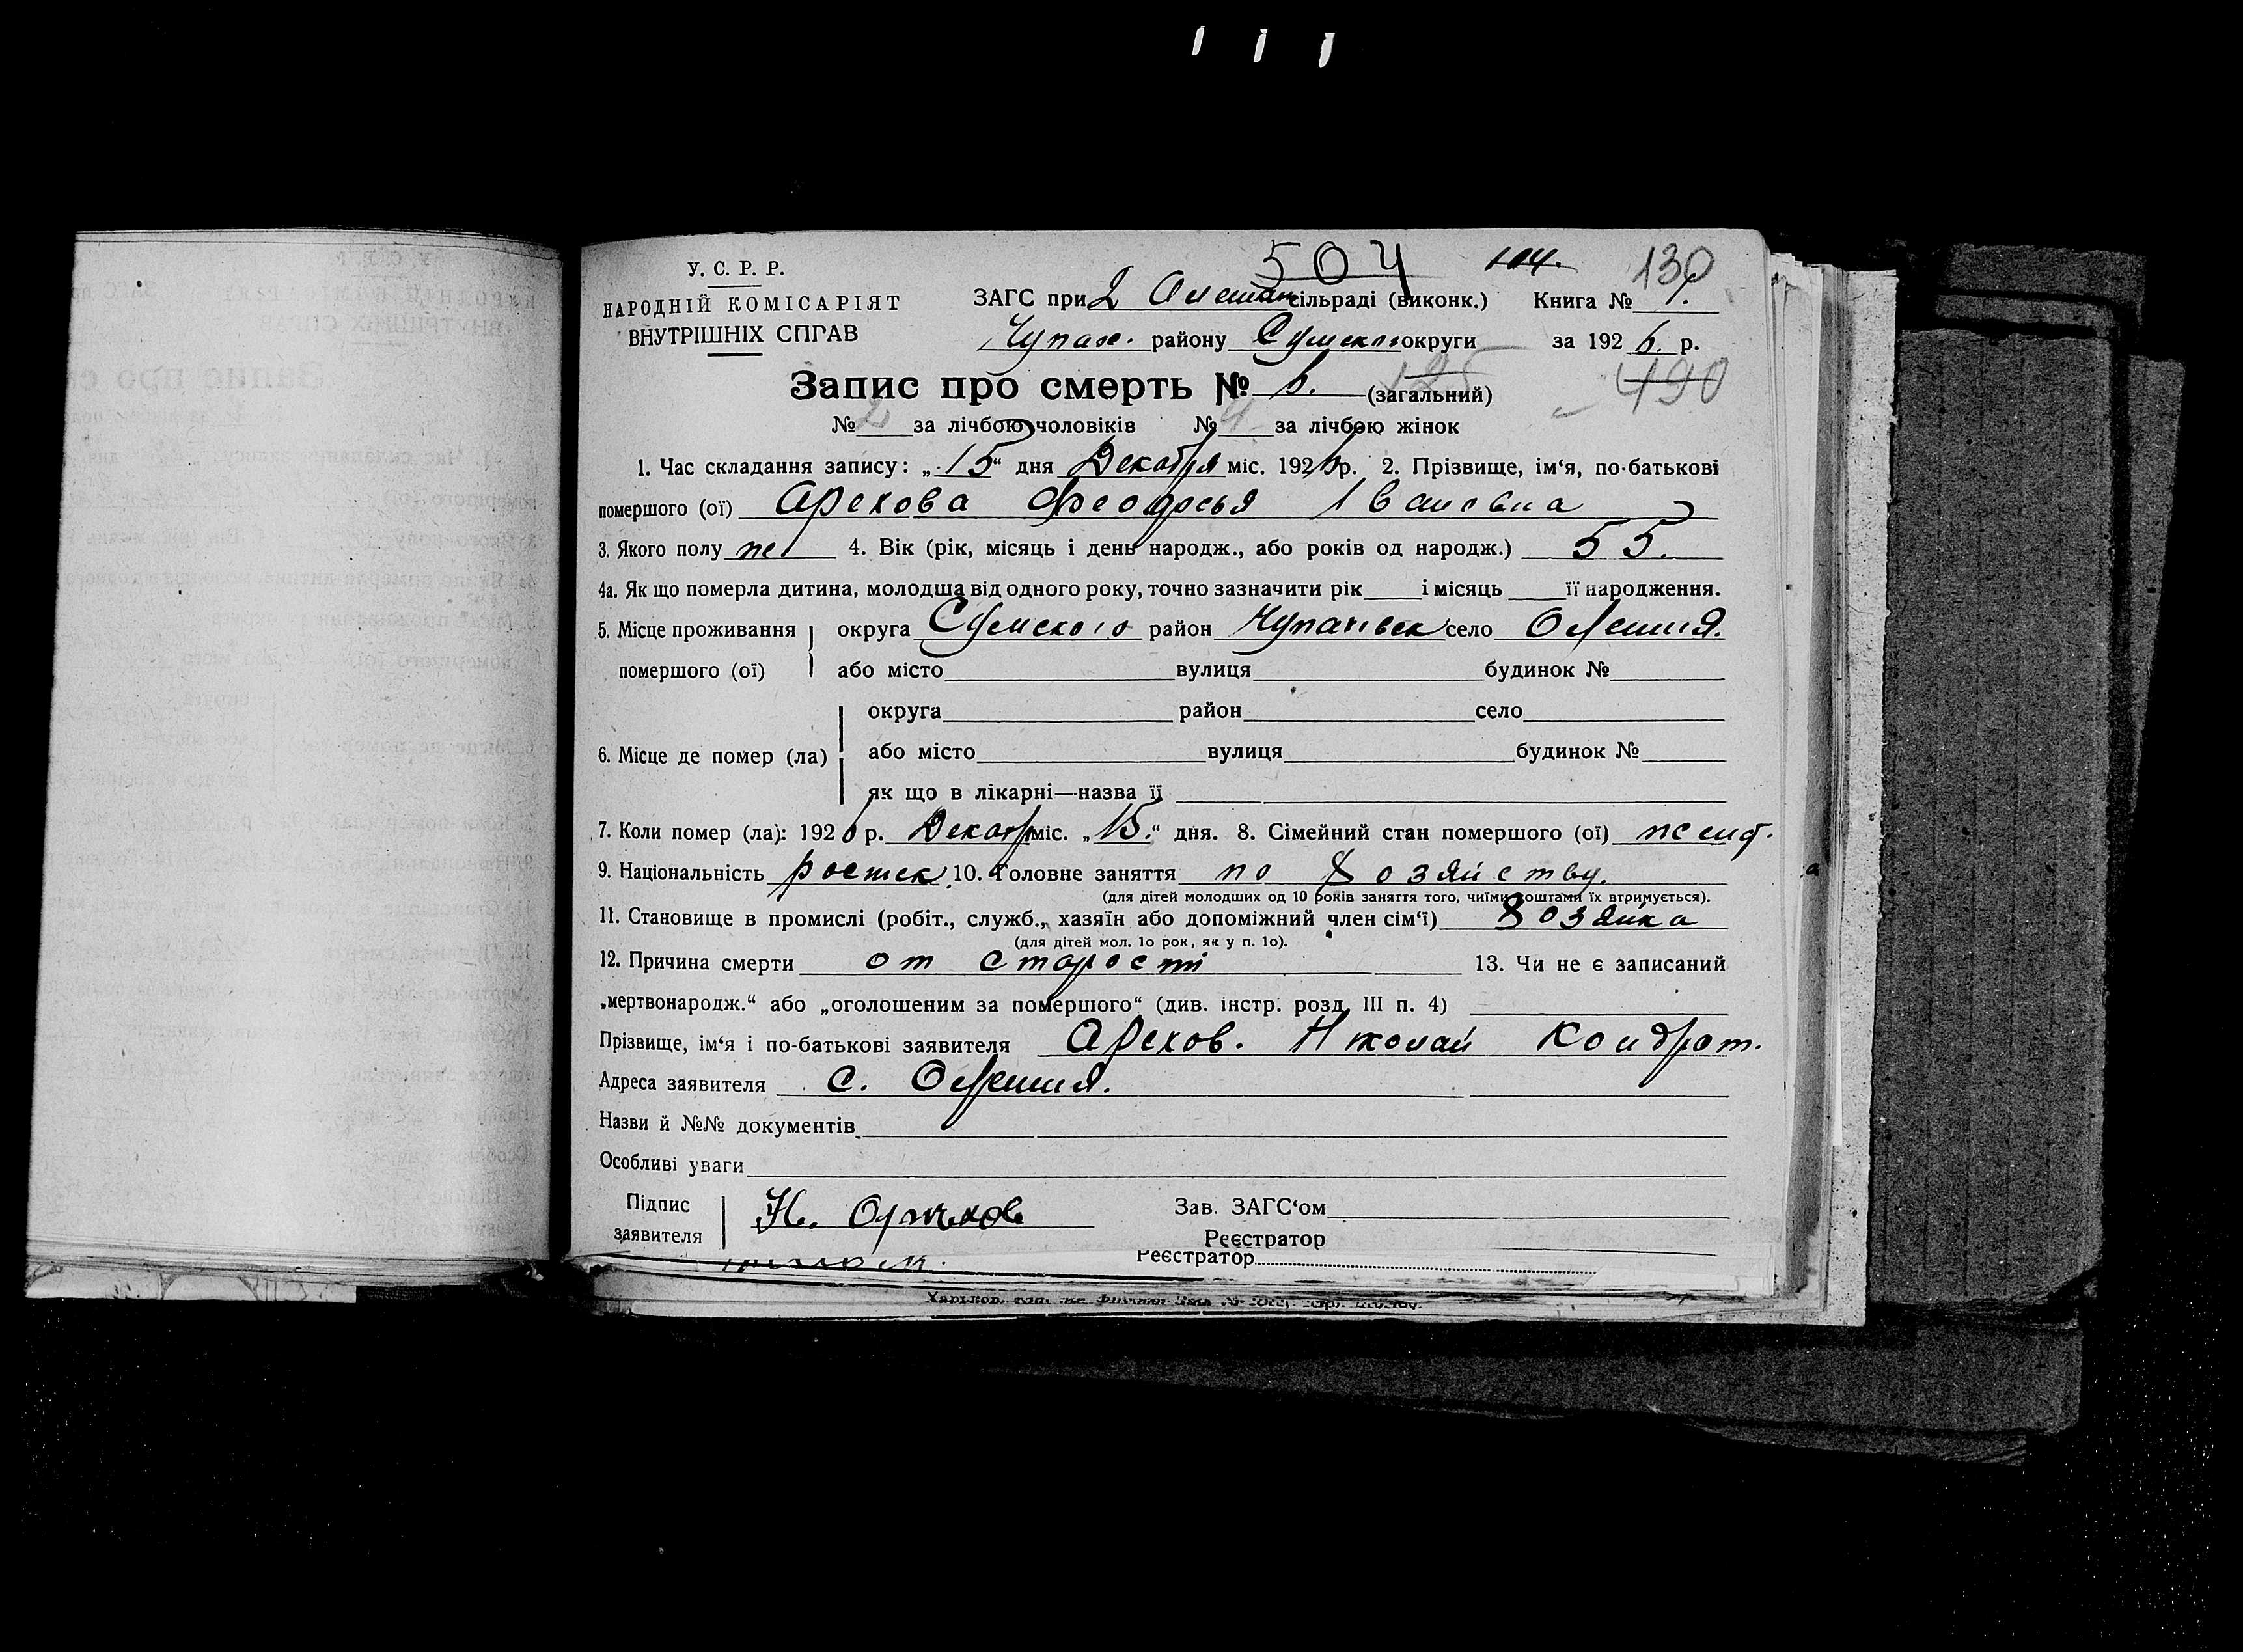 504 104. 130
У. С. Р. Р.
НАРОДНІЙ КОМІСАРІЯТ
ВНУТРІШНІХ СПРАВ
ЗАГС при 2 Олешан сільраді (виконк.) Книга № 1.
Чупах. району Сумского округи за 192 6. р.
125 490
Запис про смерть № 6. (загальний)
№ 2 за лічбою чоловіків № 4 за лічбою жінок
1. Час складання запису: „15“ дня Декабря міс. 1926 р. 2. Прізвище, ім‘я, по-батькові
помершого (ої) Арехова Феодосья Івановна
3. Якого полу же 4. Вік (рік, місяць і день народж., або років од народж.) 55.
4а. Як що померла дитина, молодша від одного року, точно зазначити рік і місяць її народження.
5. Місце проживання округа Сумского район Чупаховск село Олешня.
помершого (ої) або місто вулиця будинок №
округа район село
6. Місце де помер (ла) або місто вулиця будинок №
як що в лікарні—назва її
7. Коли помер (ла): 1926 р. Декабр міс. „15.“ дня. 8. Сімейний стан помершого (ої)
9. Національність 10. Головне заняття по хозяйству.
(для дітей молодших од 10 років заняття того, чиїми коштами їх втримується).
11. Становище в промислі (робіт., служб., хазяїн або допоміжний член сім‘ї) хозяйка
(для дітей мол. 10 рок, як у п. 10).
12. Причина смерти от старости 13. Чи не є записаний
„мертвонародж.“ або „оголошеним за помершого“ (див. інстр. розд. III п. 4)
Прізвище, ім‘я і по-батькові заявителя Арехов. Николай Кондрат.
Адреса заявителя с. Олешня.
Назви й №№ документів
Особливі уваги
Підпис
заявителя Н. Орехов
Зав. ЗАГС‘ом
Реєстратор
Реєстратор